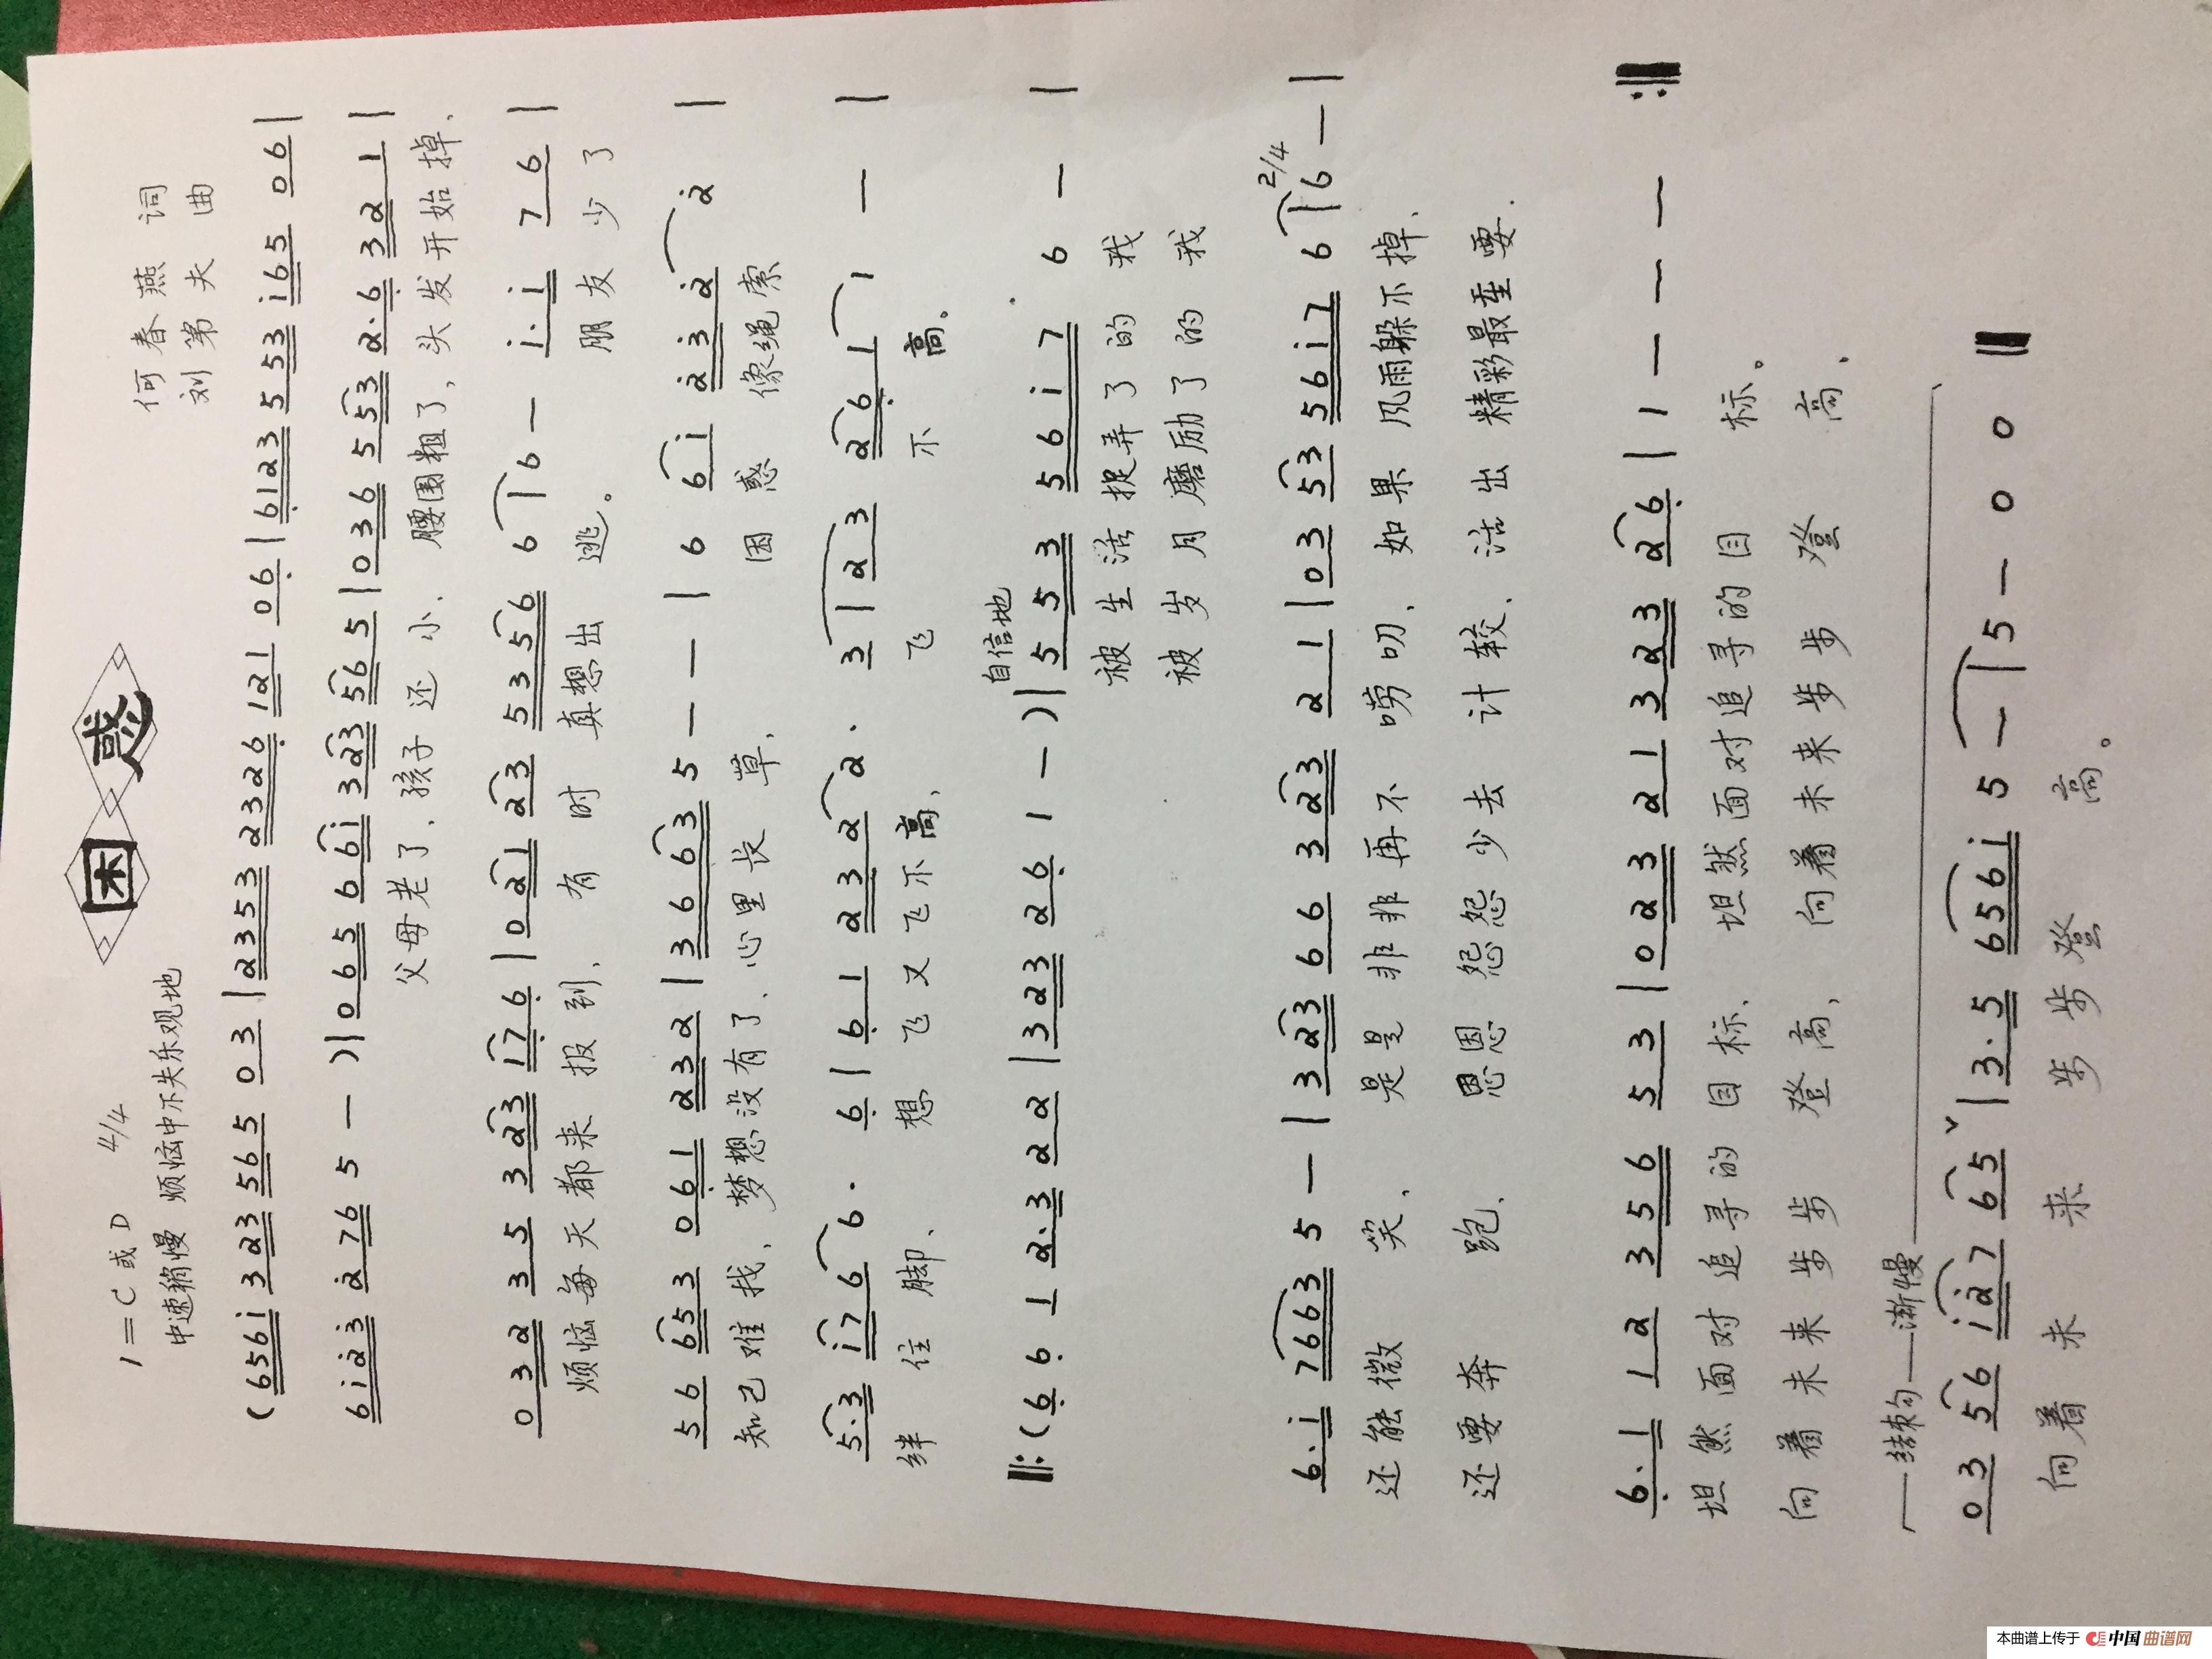 困惑
1=C 或 D 4/4
中速稍慢 烦恼中不失乐观地
何春燕 词
刘第夫 曲
(6561 323 565 03 | 2353 2326 121 06 | 6123 553 165 06 |
6123 276 5 — )| 065 661 323 565 | 036 553 2·6 321 |
父母老了、孩子还小、腰围粗了，头发开始掉、
032 35 323 176 | 021 23 5356 6 | 6 — 1·1 76 |
烦恼每天都来报到、有时真想出逃。朋友少了
56 653 061 232 | 3663 5 — — | 6 61 232 2 |
知己难找、梦想没有了、心里长草， 困惑像绳索
5·3 176 6· 6 | 61 232 2· 3 | 23 261 1 — |
绊住脚、想飞又飞不高、飞不高。
‖:(6 6 1 2·3 22 | 323 26 1 — )| 553 5617 6 — |
自信地
被生活捉弄了的我
被岁月磨励了的我
6·1 7663 5 — | 323 66 323 21 | 03 53 5617 6 | 2/4 6 — |
还能微笑、是是非非再不唠叨、如果风雨躲不掉、
还要奔跑、恩恩怨怨少去计较、活出精彩最重要.
6·1 12 356 53 | 023 21 323 26 | 1 — — — :‖
坦然面对追寻的目标、坦然面对追寻的目标。
向着未来步步登高、向着未来步步登高、
结束句——渐慢
03 56 127 65 ˇ | 3·5 6561 5 — | 5 — 0 0 ‖
向着未来步步登高。
本曲谱上传于 中国曲谱网